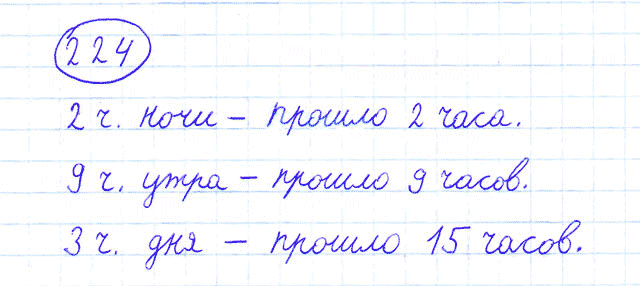 224
2 ч. ночи – прошло 2 часа.
9 ч. утра – прошло 9 часов.
3 ч. дня – прошло 15 часов.